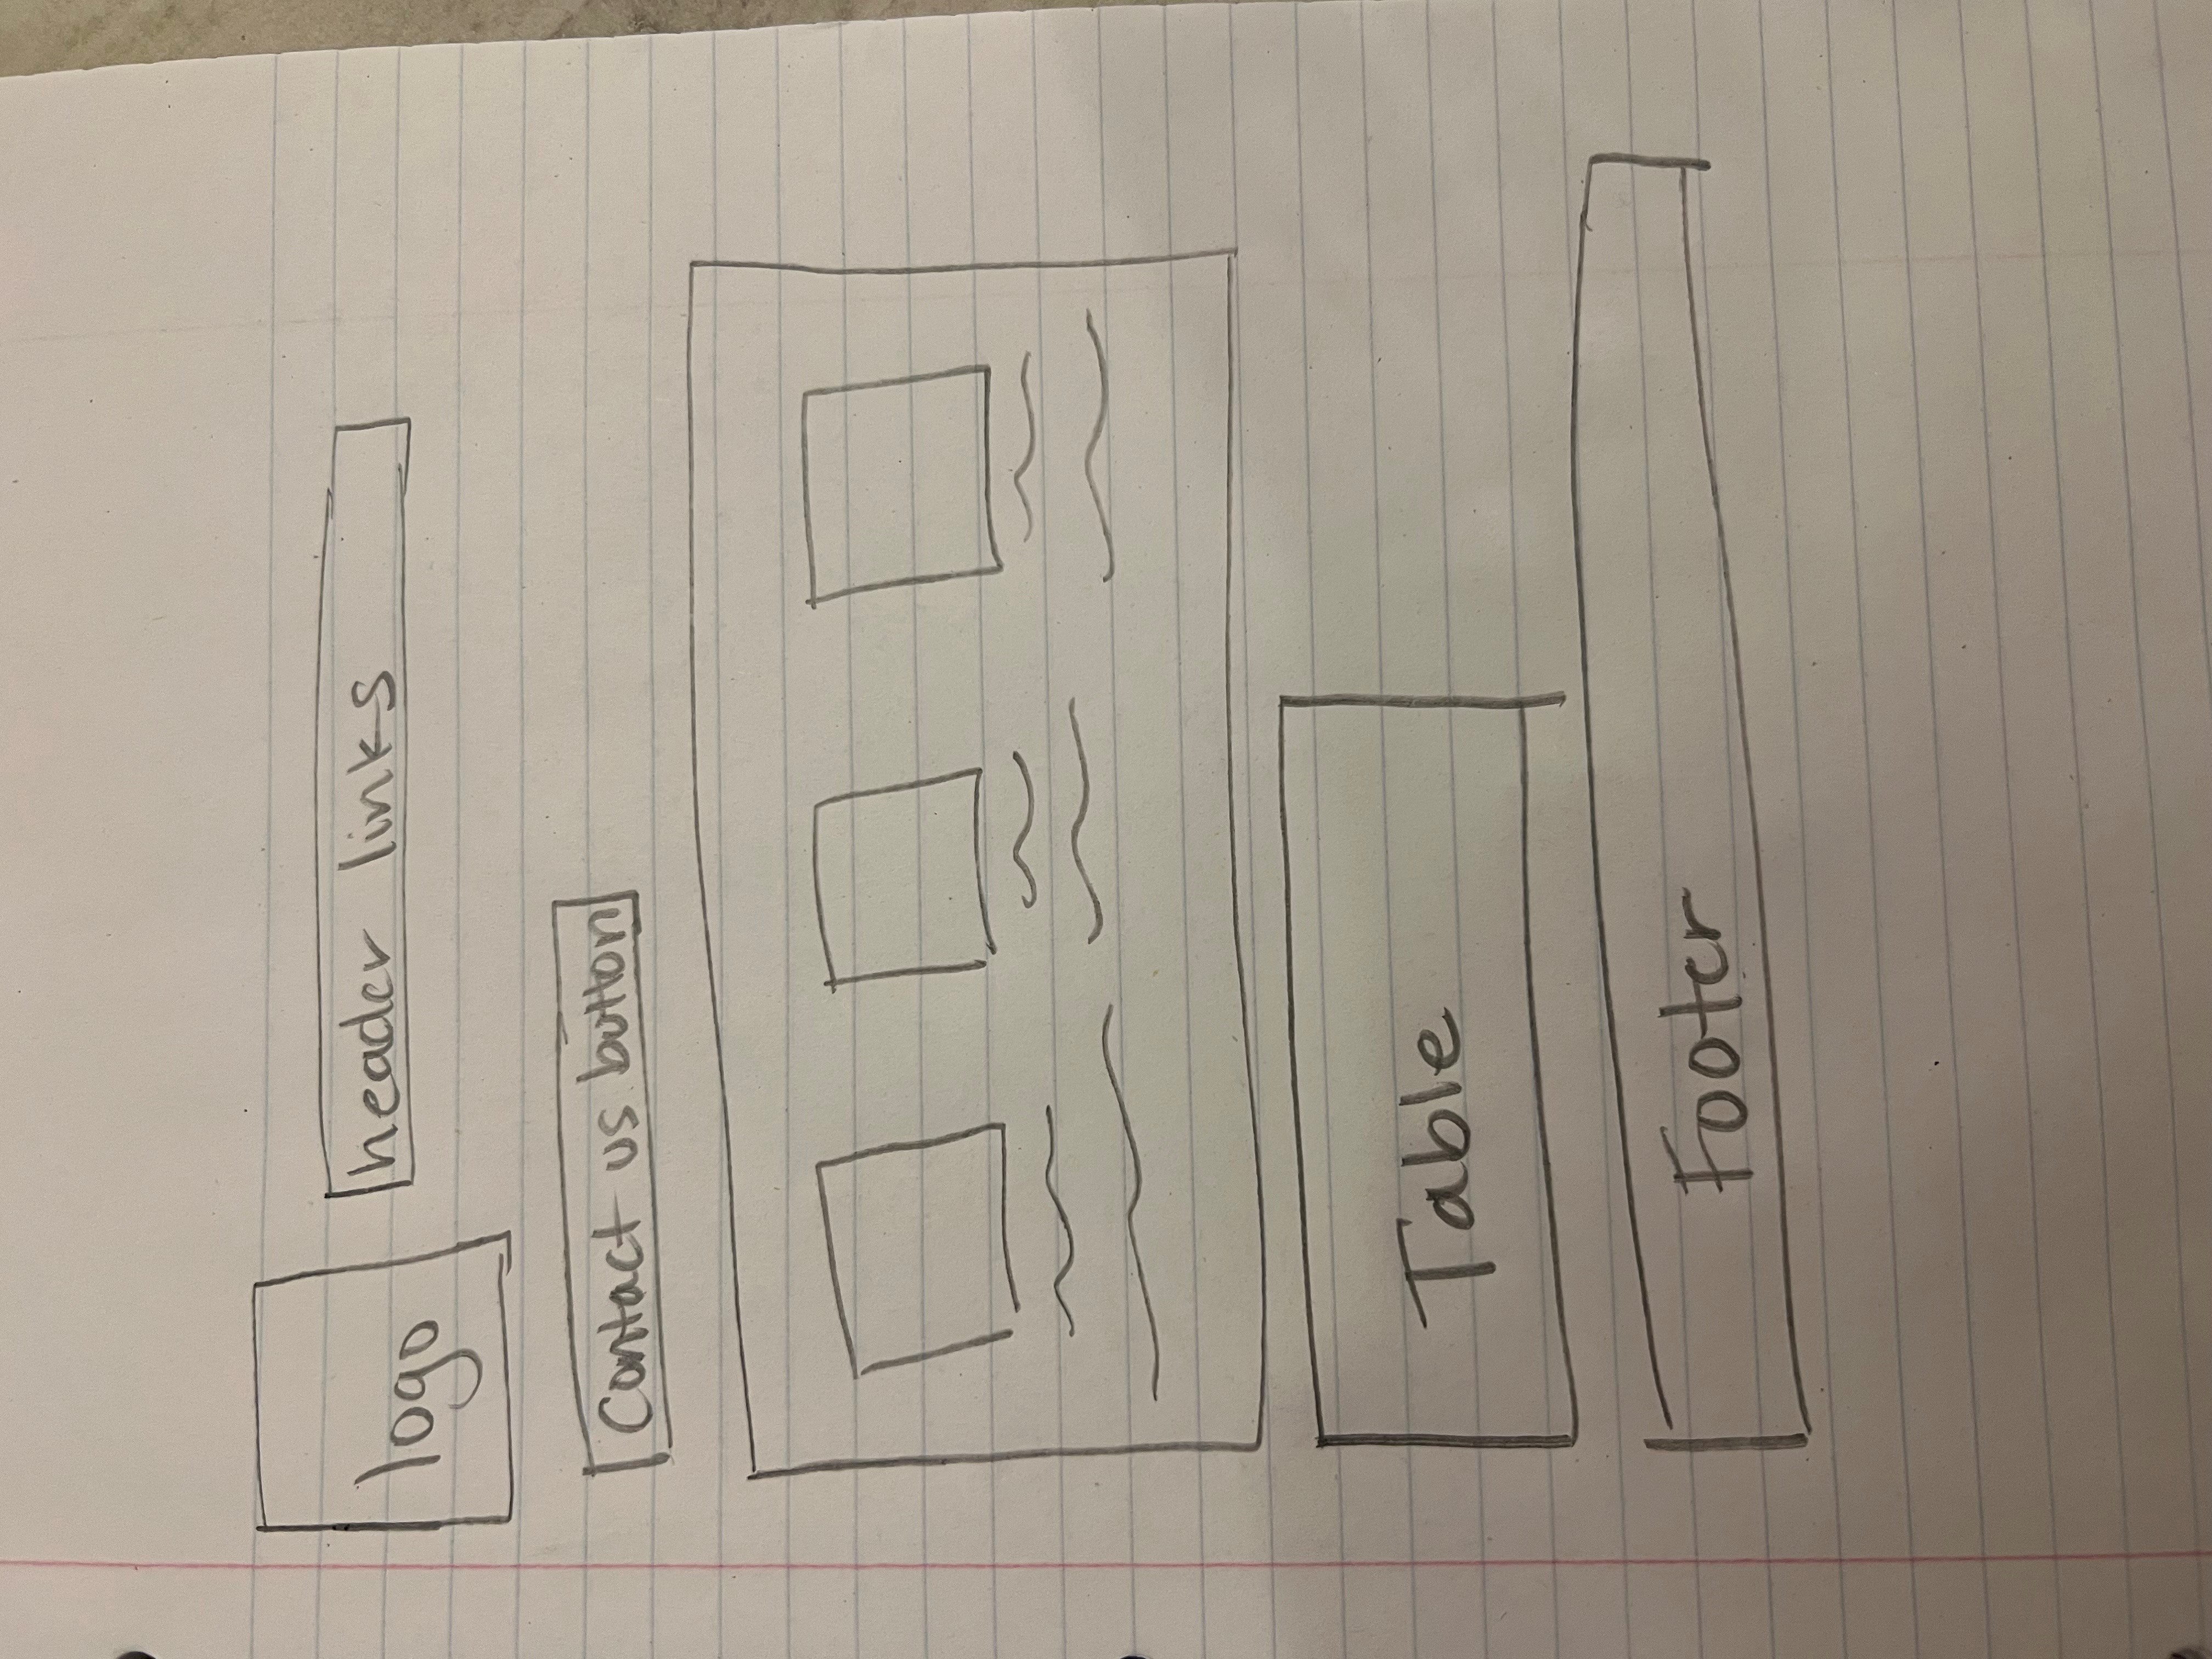 logo
header links
Contact us button
Table
Footer